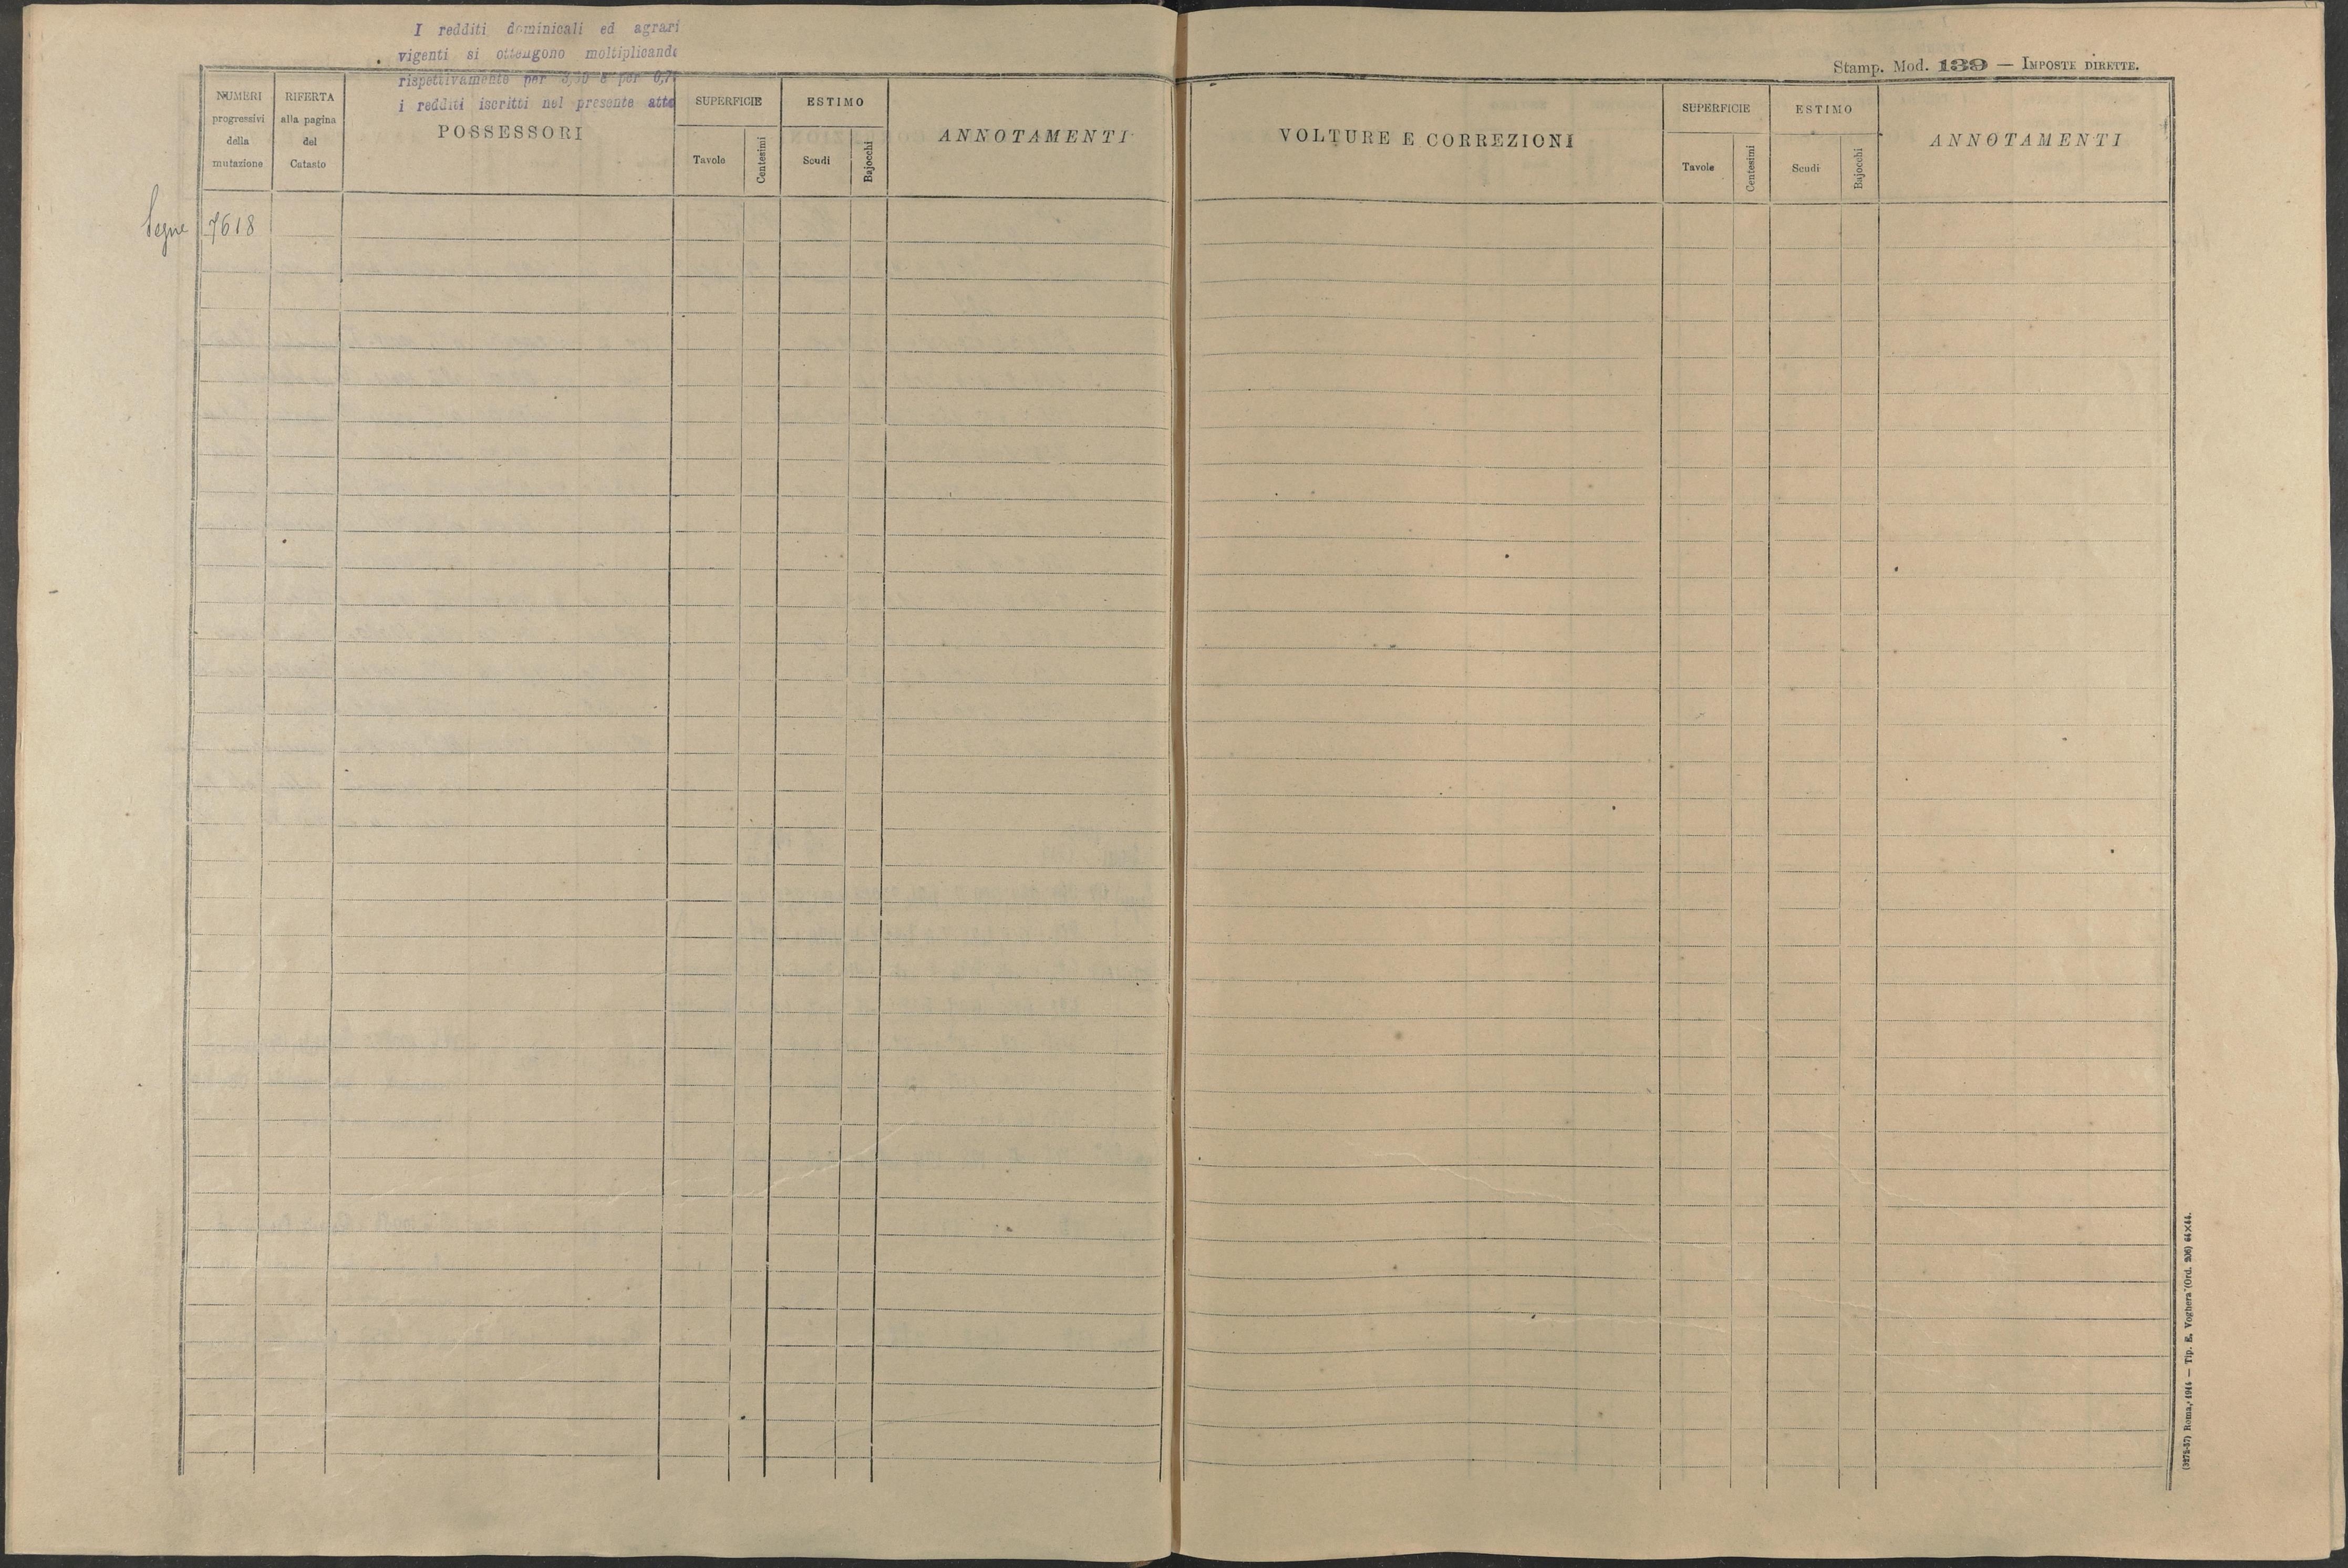 I redditi dominicali ed agrari
vigenti si ottengono moltiplicando
rispettivamente per 3,50 e per 0,7
i redditi iscritti nel presente atto
NUMERI
progressivi
della
mutazione
RIFERTA
alla pagina
del
Catasto
POSSESSORI
SUPERFICIE
Tavole
Centesimi
ESTIMO
Scudi
Bajocchi
ANNOTAMENTI
Segue 7618
Stamp. Mod. 139 — IMPOSTE DIRETTE.
VOLTURE E CORREZIONI
SUPERFICIE
Tavole
Centesimi
ESTIMO
Scudi
Bajocchi
ANNOTAMENTI
Roma, 1944 — Tip. E. Voghera (Ord. 206) 64×44.